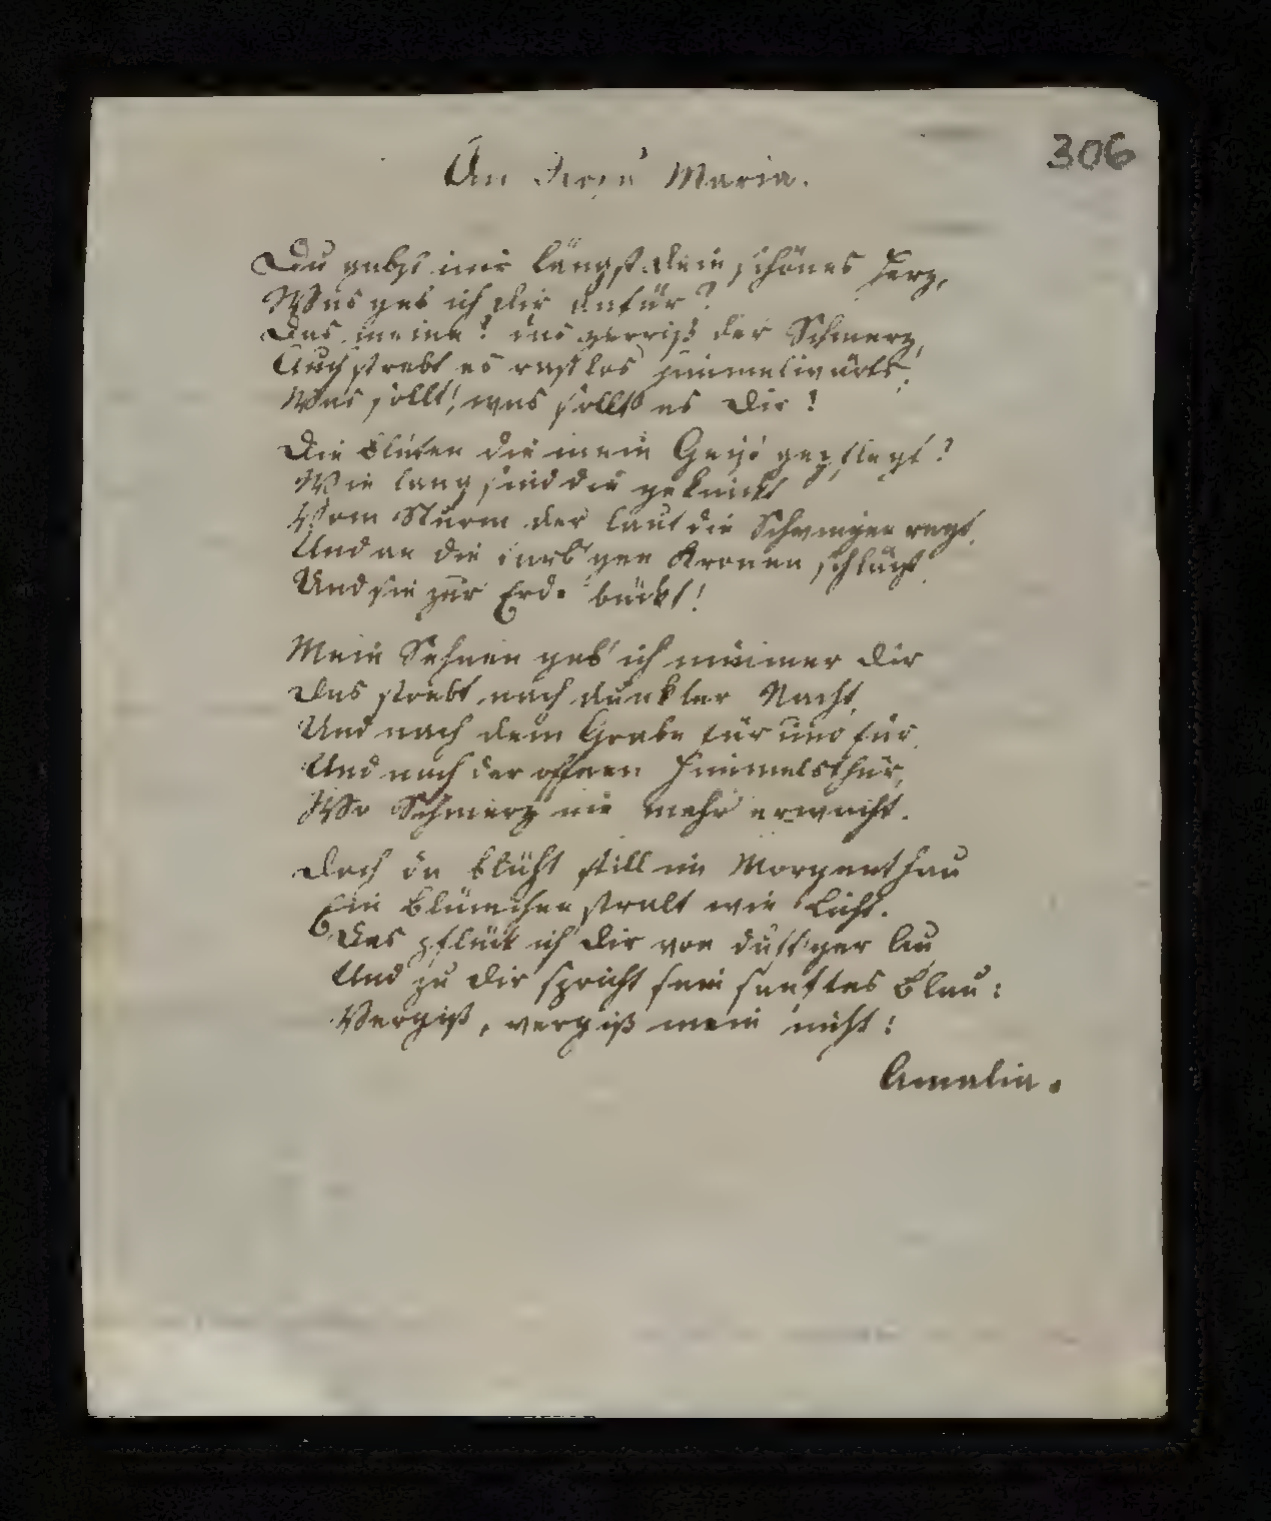 306
An Rosa Maria.
Du gabst mir längst dein schönes Herz,
Was geb ich dir dafür?
Das meine? das zerriß der Schmerz,
Auch strebt es rastlos himmelwärts,
Was sollt', was sollt es Dir!
Die Blüten die mein Geist gepflegt?
Wie lang sind die geknickt
Vom Sturm der laut die Schwingen regt,
Und an die farb'gen Kronen schlägt
Und sie zur Erde bückt!
Mein Sehnen geb' ich nimmer dir
Das strebt nach dunkler Nacht,
Und nach dem Grabe für und für,
Und nach der offnen Himmelsthür,
Wo Schmerz nie mehr erwacht.
Doch da blüht still im Morgenthau
Ein Blümchen stralt wie Licht.
Das pflück ich dir von duft'ger Au
Und zu dir spricht sein sanftes Blau:
Vergiß, vergiß mein nicht!
Amalia.